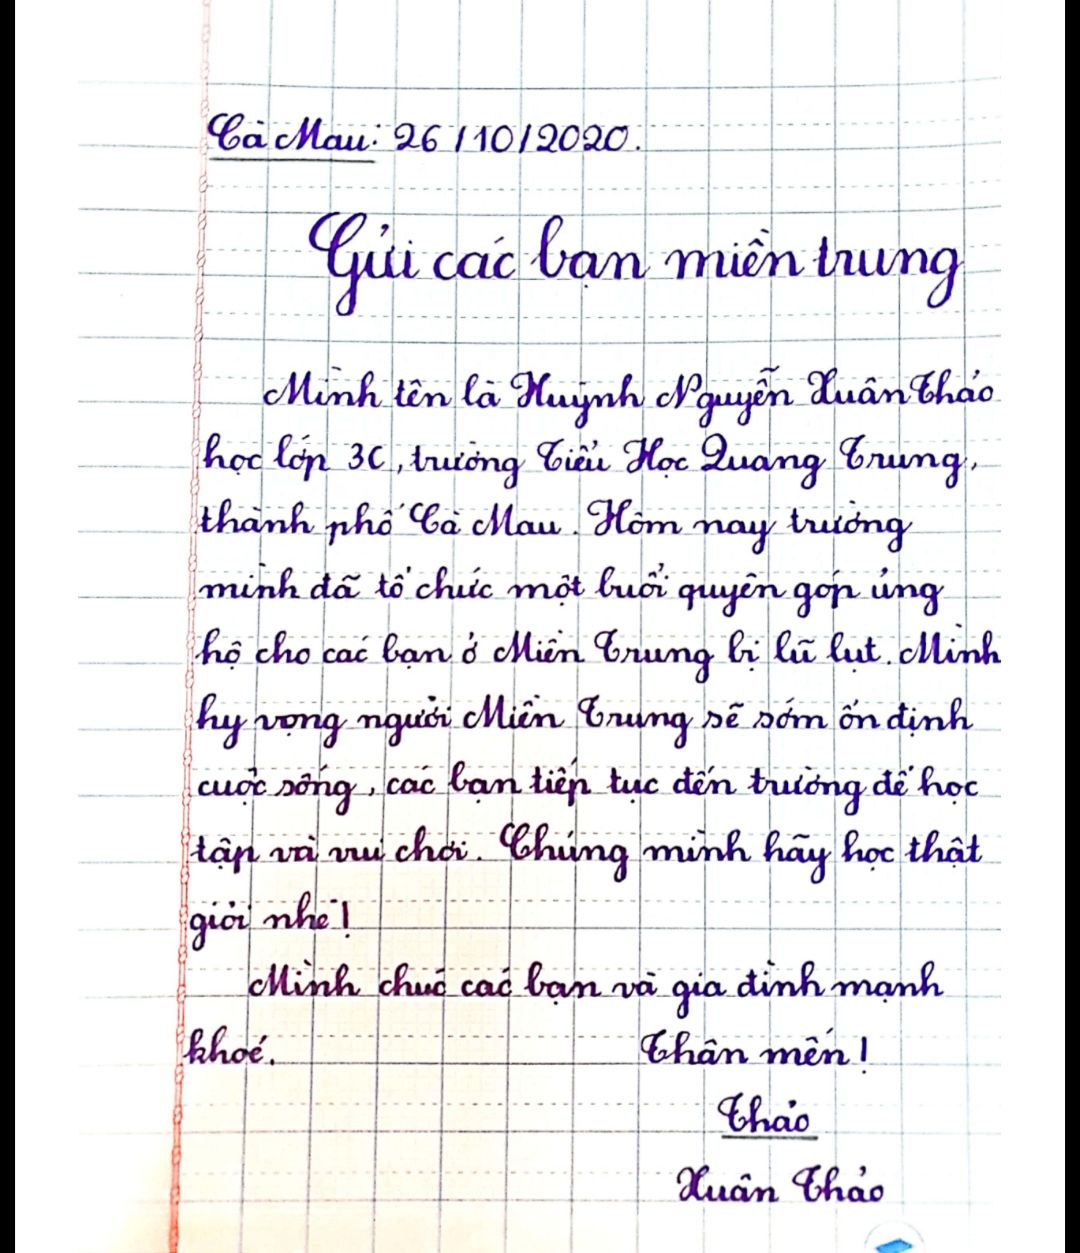 Cà Mau: 26/10/2020.
Gửi các bạn miền trung
Mình tên là Huỳnh Nguyễn Xuân Thảo
học lớp 3C, trường Tiểu Học Quang Trung,
thành phố Cà Mau. Hôm nay trường
mình đã tổ chức một buổi quyên góp ủng
hộ cho các bạn ở Miền Trung bị lũ lụt. Mình
hy vọng người Miền Trung sẽ sớm ổn định
cuộc sống, các bạn tiếp tục đến trường để học
tập và vui chơi. Chúng mình hãy học thật
giỏi nhé!
Mình chúc các bạn và gia đình mạnh
khoẻ. Thân mến!
Thảo
Xuân Thảo